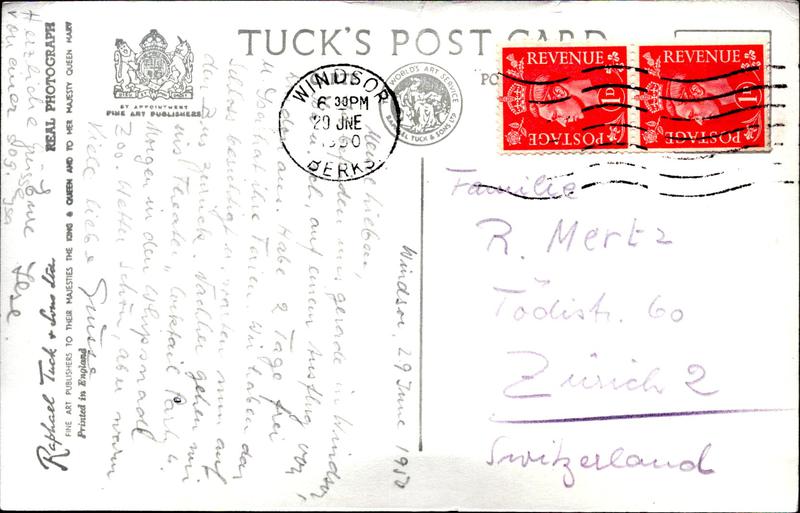 TUCK'S POST CARD
BY APPOINTMENT
FINE ART PUBLISHERS
WORLD'S ART SERVICE
RAPHAEL TUCK & SONS LTD
WINDSOR
6. 30PM
29 JNE
1950
BERKS.
REVENUE
1D
POSTAGE
REVENUE
1D
POSTAGE
Windsor, 29 June 1950
Meine Lieben,
gerade in Windsor
auf einem Ausflug von
aus. Habe 2 Tage frei
Ferien. Wir haben das
Schloss besichtigt u. warten nun auf
den Bus zurück. Nachher gehen wir
ins Theater "Cocktail Party" u.
morgen in den Whipsnade
Zoo. Wetter schön, aber warm
Viele liebe Grüsse
Herzliche Grüsse
von
Familie
R. Mertz
Tödistr. 60
Zürich 2
Switzerland
REAL PHOTOGRAPH
Raphael Tuck & Sons Ltd.
FINE ART PUBLISHERS TO THEIR MAJESTIES THE KING & QUEEN AND TO HER MAJESTY QUEEN MARY
Printed in England